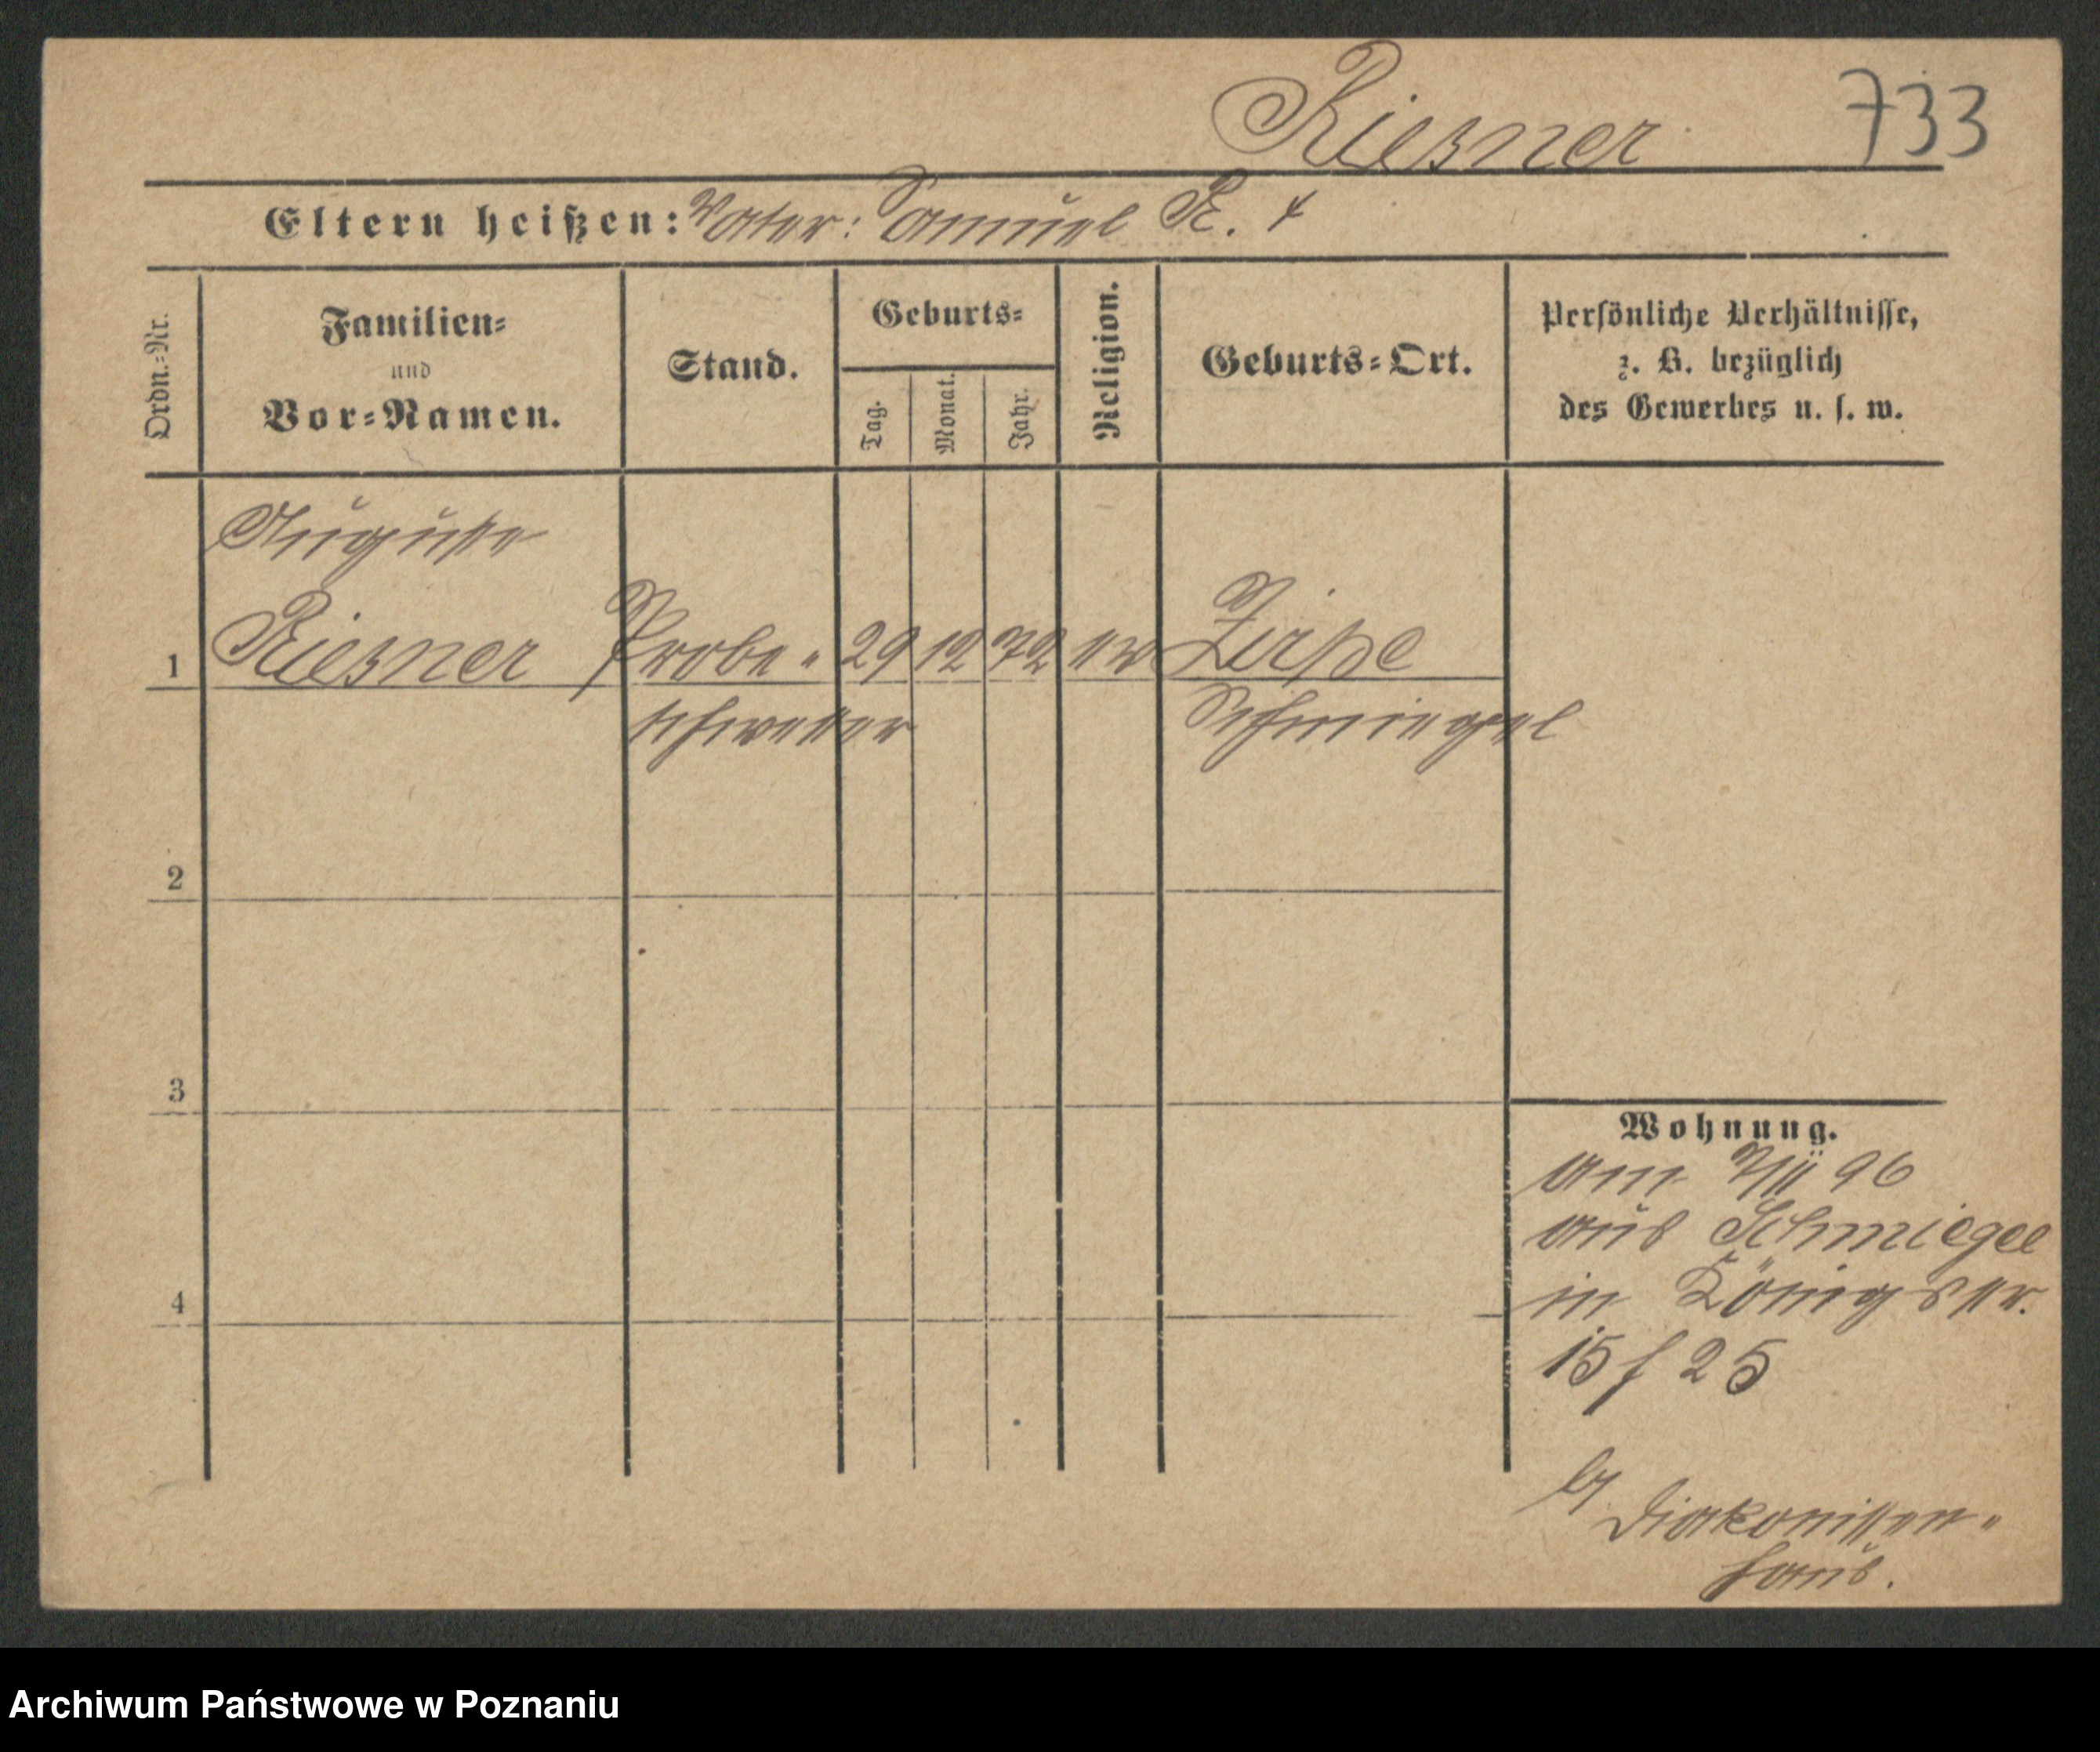 Riesner 733
Eltern heißen: Vater: Samuel R. +
Ordn.-Nr.
Familien-
und
Vor-Namen.
Stand.
Geburts-
Tag.
Monat.
Jahr.
Religion.
Geburts-Ort.
Persönliche Verhältnisse,
z. B. bezüglich
des Gewerbes u. s. w.
Auguste
1 Riesner Probe- 29 12 72 ev Zirpe
schwester Schmiegel
2
3
4
Wohnung.
am 7/II 96
aus Schmiegel
in Königstr.
15 f 25
Diakonissen-
haus.
Archiwum Państwowe w Poznaniu